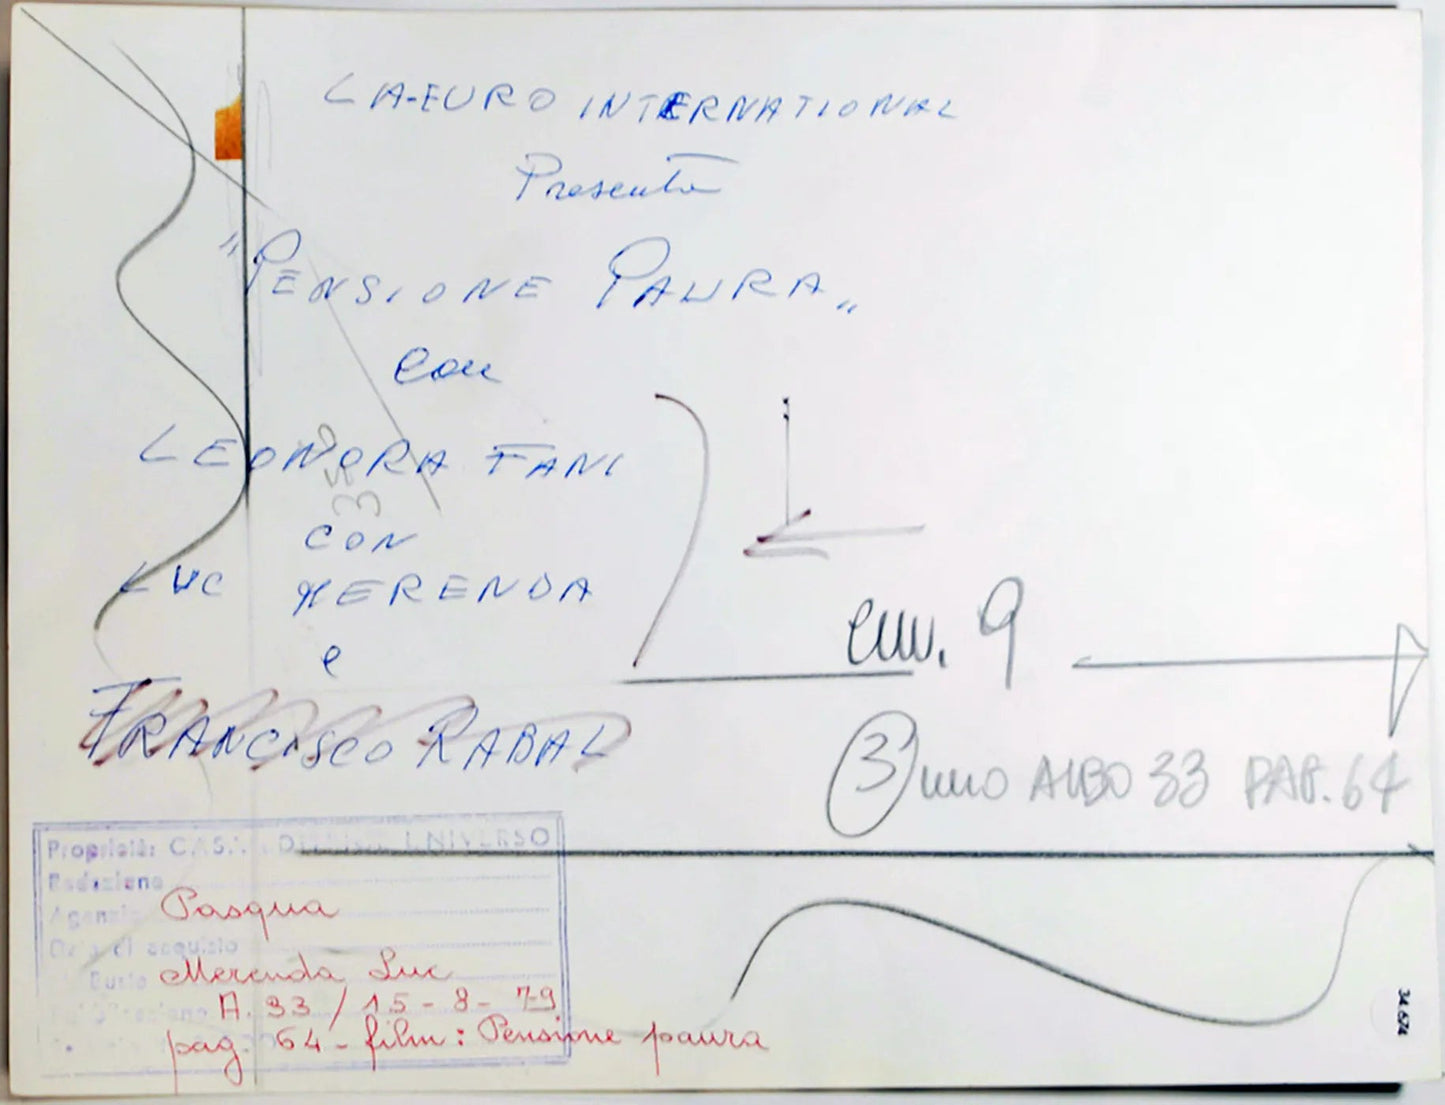 LA-EURO INTERNATIONAL
Presenta
"PENSIONE PAURA"
con
LEONORA FANI
CON
LUC MERENDA
e
FRANCISCO RABAL
9
3 ALBO 33 PAG. 64
Proprietà: CASA EDITRICE UNIVERSO
Redazione
Agenzia Pasqua
Data di acquisto
Busta Merenda Luc
Pubblicazione A. 33 / 15-8-79
pag. 64 - film: Pensione paura
34.674